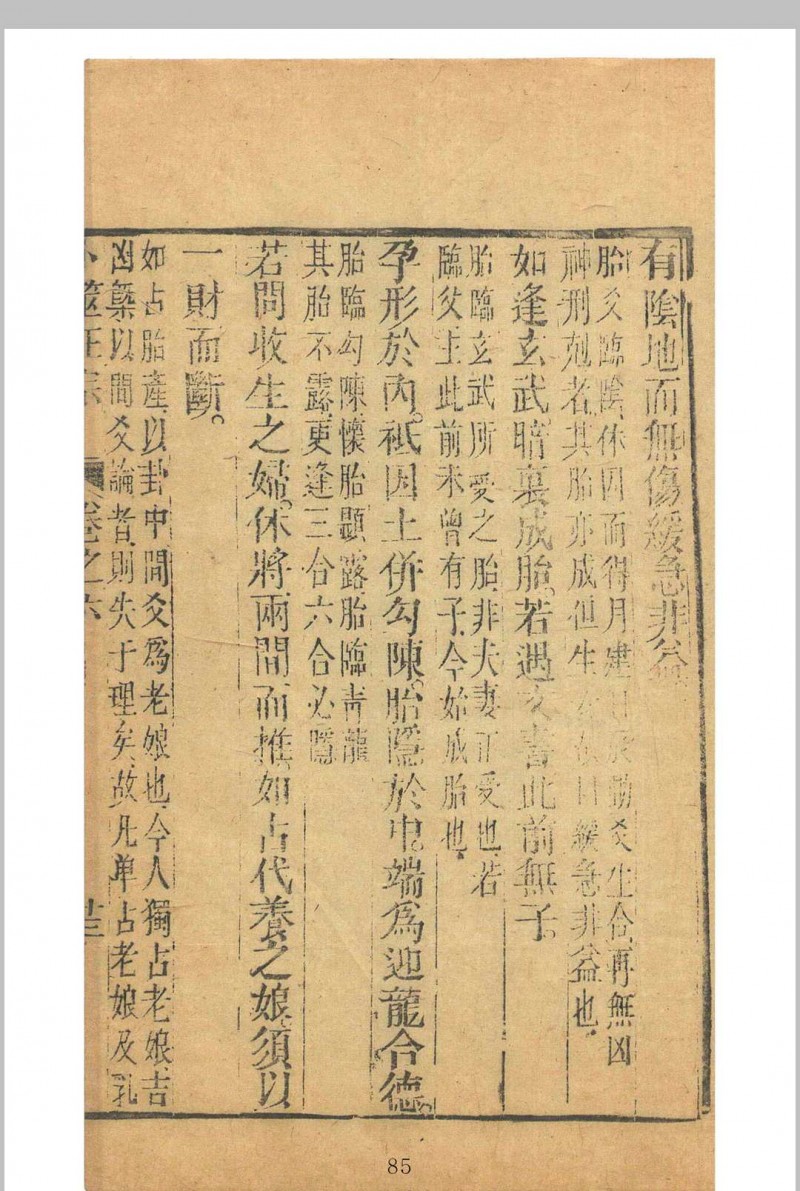 有陰地而無傷緩急非益
胎爻臨陰休囚而得月建日辰動爻生合再無凶
神刑剋者其胎亦成但生 故曰緩急非益也
如逢玄武暗裏成胎若遇文書此前無子
胎臨玄武所受之胎非夫妻正受也若
臨父主此前未曾有子今始成胎也
孕形於內祗因土併勾陳胎隱於中端為迎龍合德
胎臨勾陳懷胎顯露胎臨青龍
其胎不露更逢三合六合必隱
若問收生之婦休將兩間而推如占代養之娘須以
一財而斷
如占胎產以卦中間爻爲老娘也今人獨占老娘吉
凶槩以間爻論者則失于理矣故凡单占老娘及乳
卜筮正宗 卷之六
85